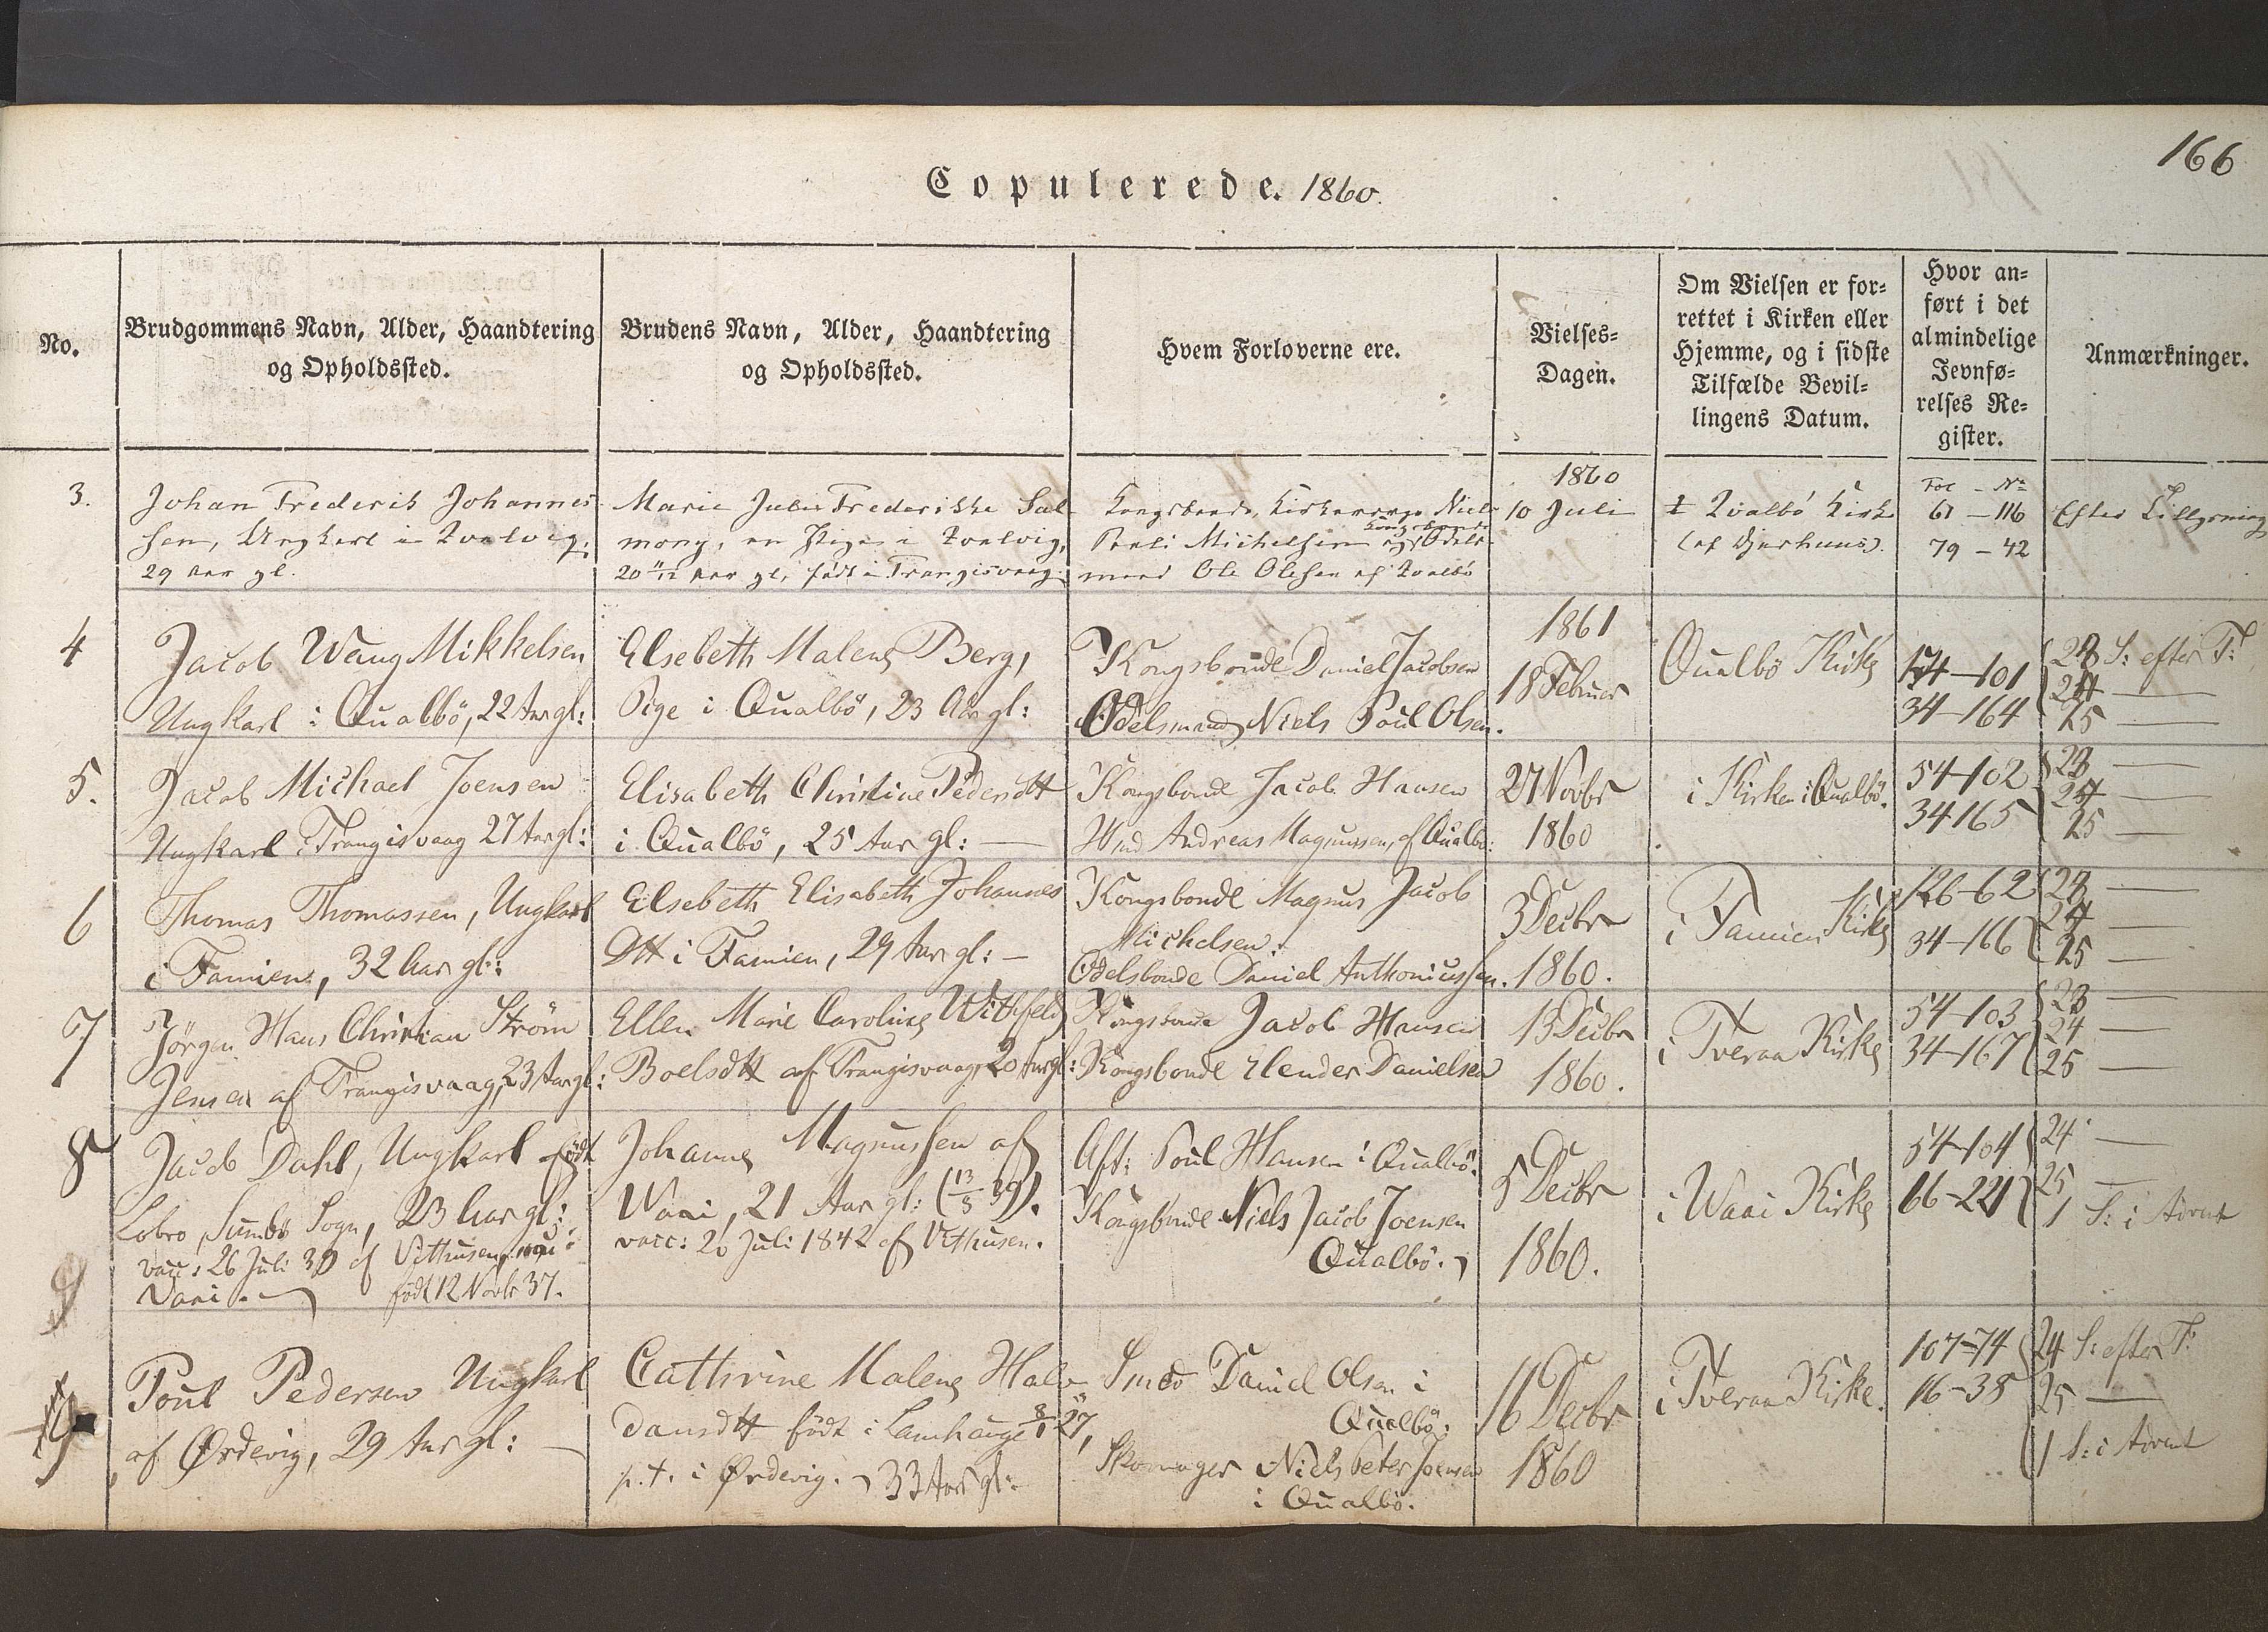 166
Copulerede. 1860.
No.
Brudgommens Navn, Alder, Haandtering
og Opholdssted.
Brudens Navn, Alder, Haandtering
og Opholdssted.
Hvem Forloverne ere.
Vielses-
Dagen.
Om Vielsen er for-
rettet i Kirken eller
Hjemme, og i sidste
Tilfælde Bevil-
lingens Datum.
Hvor an-
ført i det
almindelige
Jevnfø-
relses Re-
gister.
Anmærkninger.
3.
Johan Frederik Johannes-
sen, Ungkarl i Kvalvig,
29 Aar gl.
Marie Julie Frederikke Sal-
mony, en Pige i Kvalvig,
20 11/12 Aar gl, født i Trangisvaag.
Kongsbonde, Kirkeværge Niels
Kongsbonde
Pauli Michelsen og Odels-
mand Ole Olesen af Kvalbø
1860
10 Juli
I Kvalbø Kirke
(af Djurhuus).
Fol - No
61 - 116
79 - 42
Efter Tillysning
4
Jacob Waag Mikkelsen
Ungkarl i Qualbö, 22 Aar gl:
Elsebeth Malene Berg,
Pige i Qualbö, 23 Aar gl:
Kongsbonde Daniel Jacobsen
Odelsmand Niels Poul Olsen.
1861
18 Februar
Qualbö Kirke
54-101
34-164
23 S: efter T:
24 —
25 —
5.
Jacob Michael Joensen
Ungkarl i Trangisvaag 27 Aar gl:
Elisabeth Christine Pedersdtt
i Qualbö, 25 Aar gl: —
Kongsbonde Jacob Hansen
Hmd Andreas Magnussen, af Qualbö:
27 Novbr
1860
i Kirken i Qualbö.
54-102
34-165
23 —
24 —
25 —
6
Thomas Thomassen, Ungkarl
i Famien, 32 Aar gl:
Elsebeth Elisabeth Johannes
Dtt i Famien, 29 Aar gl: —
Kongsbonde Magnus Jacob
Michelsen.
Odelsbonde Daniel Anthoniussen.
3 Decbr
1860.
i Famien Kirke
126-62
34-166
23 —
24 —
25 —
7
Jörgen Hans Christian Ström
Jensen af Trangisvaag, 23 Aar gl:
Ellen Marie Caroline Withfeld
Boelsdtt af Trangisvaag, 20 Aar gl:
Kongsbonde Jacob Hansen
Kongsbonde Elender Danielsen
13 Decbr
1860.
i Tveraa Kirke
54-103
34-167
23 —
24 —
25 —
8
Jacob Dahl, Ungkarl født
Lobro, Sumbö Sogn, 23 Aar gl:
vacc: 26 Juli 39 af Vithusen,
Vaai. født 12 Novbr 37.
Johanne Magnussen af
Waai, 21 Aar gl: (13/5 39).
vacc: 20 Juli 1842 af Vithusen.
Aft: Poul Hansen i Qualbö.
Kongsbonde Niels Jacob Joensen
Qualbö.
5 Decbr
1860.
i Waai Kirke
54-104
66-221
24 —
25 —
1 S: i Advent
9
Poul Pedersen Ungkarl
af Ørdevig, 29 Aar gl: —
Cathrine Malene Halv
dansdtt født i Lamhauge 8/1 27,
p.t. i Ørdevig. 33 Aar gl:
Smed Daniel Olsen i
Qualbö.
Skomager Niels Peter Joensen
i Qualbö.
16 Decbr
1860
i Tveraa Kirke.
107-74
16-38
24 S: efter T:
25 —
1 S: i Advent